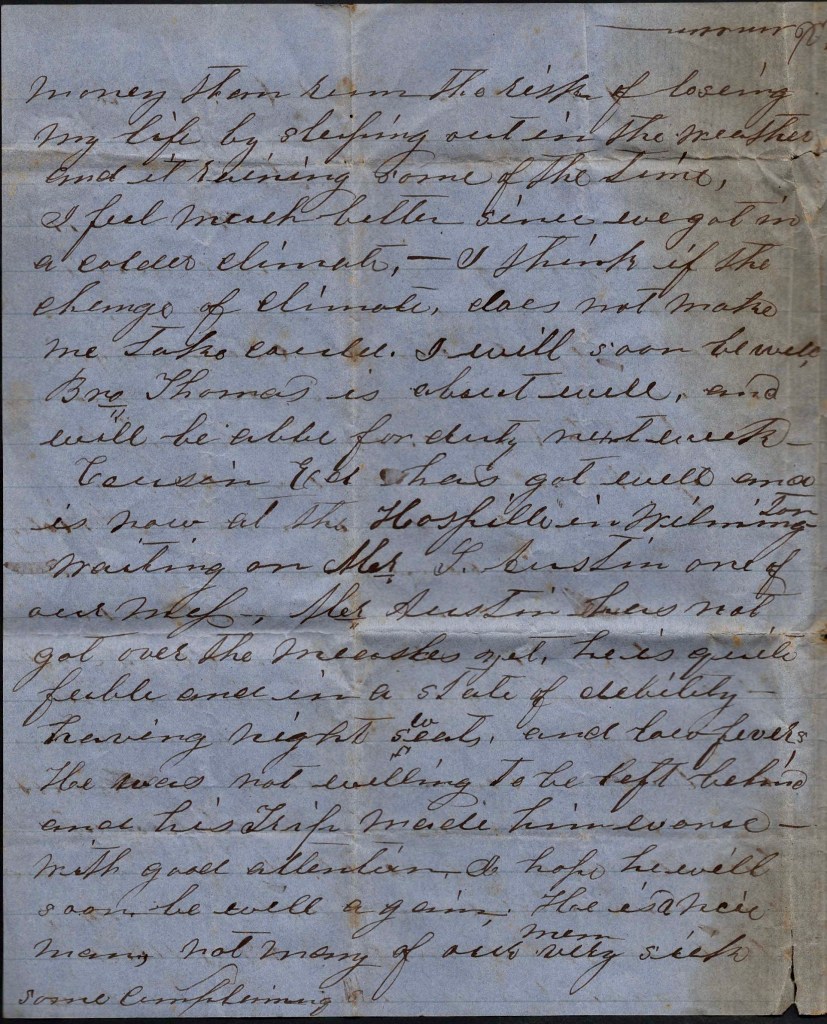 money than run the risk of loseing
my life by sleiping out in the weather
and it raining some of the time,
I feel much better since we got in
a colder climate, — I think if the
change of climate, does not make
me take could. I will soon be well,
Bro Thomas is about well, and
will be able for duty next week —
Cousin Ed has got well and
is now at the Hospitle in Wilmington
waiting on Mr. L. Austin one of
our mess —, Mr Austin has not
got over the measles yet, he is quite
feeble and in a state of debility —
having night sweats, and low fevers
He was not willing to be left behind
and his Trip made him worse —
with good attention, I hope he will
soon be well again, He is a nice
man, not many of our men very sick
some complaining